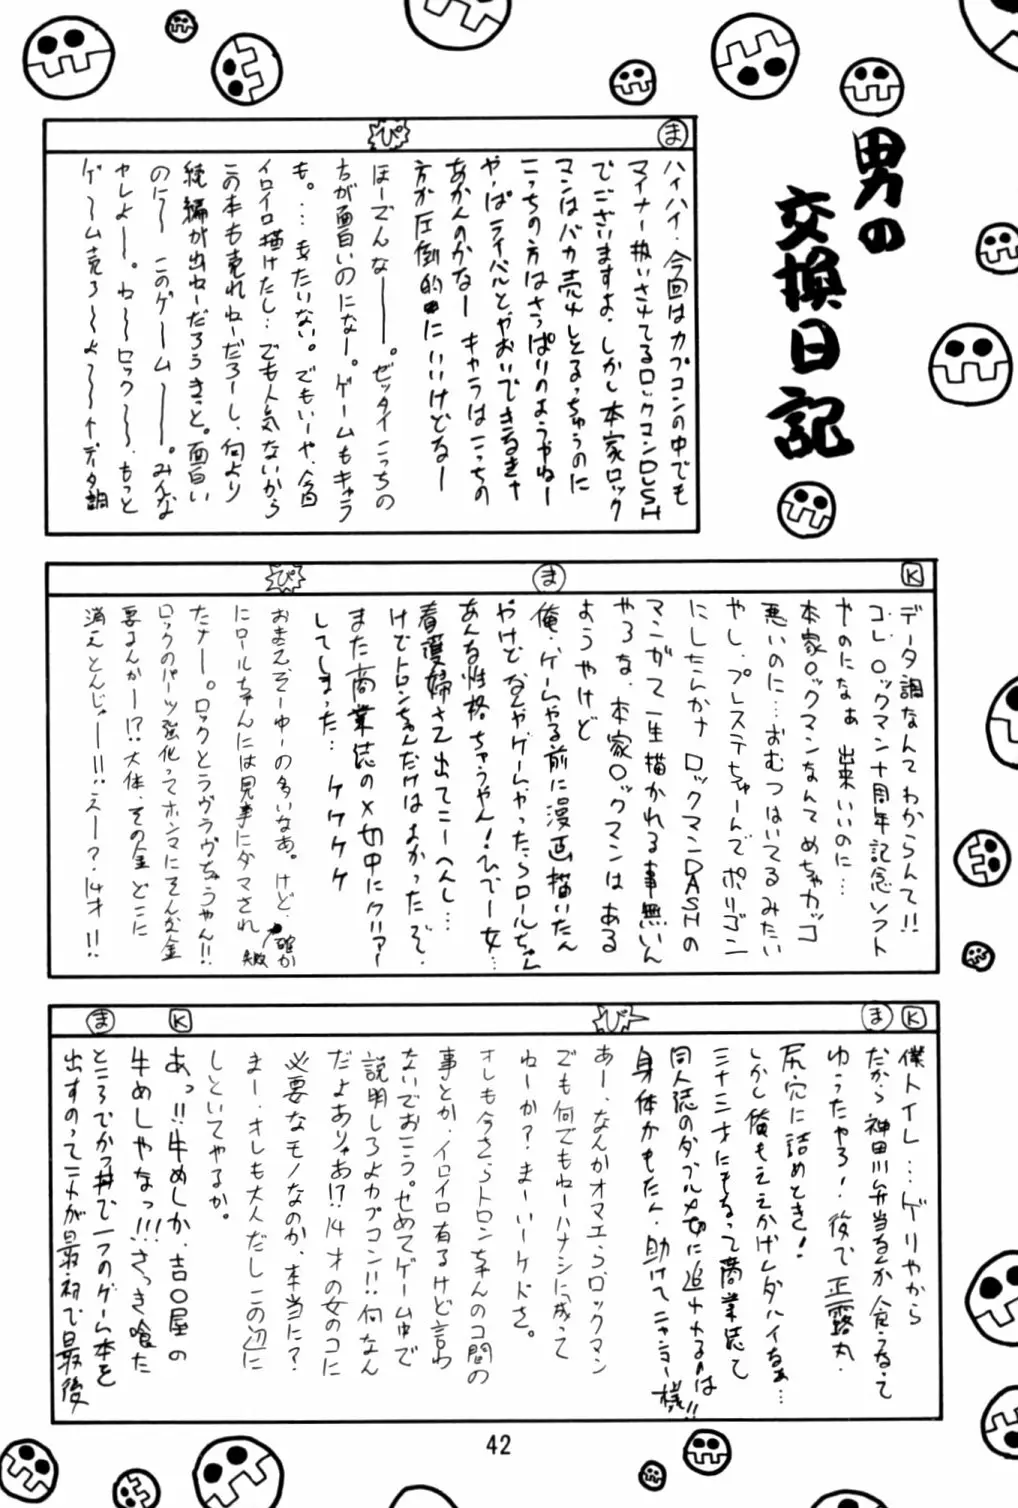 男の
交換日記
ま
ハイハイ、今回はカプコンの中でも
マイナー扱いされてるロックマンDASH
でございますよ。しかし本家ロック
マンはバカ売れしとるっちゅうのに
こっちの方はさっぱりのようやねー
やっぱライバルとやおいできるキャ
あかんのかなー キャラはこっちの
方が圧倒的にいいけどなー
ぴ
ほーでんなー。ゼッタイこっちの
方が面白いのになー。ゲームもキャラ
も。…もったいない。でもいーや、今回
イロイロ描けたし…でも人気ないから
この本も売れねーだろーし、何より
続編が出ねーだろうきっと。面白い
のに〜 このゲーム――。みんな
ヤレよ――。ね〜ロック〜〜、もっと
ゲ〜ム売ろ〜よ〜〜↑データ調
K
データ調なんてわからんて!!
コレ、ロックマン十周年記念ソフト
やのになぁ 出来いいのに…
本家ロックマンなんてめちゃカッコ
悪いのに…おむつはいてるみたい
やし、プレステちゃーんでポリゴン
にしたらんかナ ロックマンDASHの
マンガて一生描かれる事無いん
やろな、本家ロックマンはある
ようやけど
ま
俺、ゲームやる前に漫画描いたん
やけど なんやゲームやったらロールちゃん
あんな性格ちゃうやん!ひでー女…
看護婦さん出てこーへんし…
けどトロンちゃんだけはよかったぞ、
また商業誌の〆切中にクリアー
してしまった… ケケケケ
ぴ
おまえそーゆーの多いなあ。けど、確か
にロールちゃんには見事にダマされ
たナー。ロックとラヴラヴちゃうやん!!
ロックのパーツ強化ってホンマにそんな金
要るんかー!?大体、その金 どこに
消えとんじゃー!!…えー?14才!!
K
僕トイレ…ゲリやから
ま
だから神田川弁当なんか食うなって
ゆったやろ!、後で正露丸、
尻穴に詰めとき!
しかし俺もええかげんダハイなぁ…
三十三才にもなって商業誌て
同人誌のダブル〆切に追われるのは
身体がもたん、助けてニャンコー様!!
ぴ
あー、なんかオマエら、ロックマン
でも何でもねーハナシに成って
ねーか?まーいーケドさ。
オレも今さらトロンちゃんのコ間の
事とか、イロイロ有るけど言わ
ないでおこう。せめてゲーム中で
説明しろよカプコン!!何なん
だよありゃあ!?14才の女のコに
必要なモノなのか、本当に?
まー、オレも大人だしこの辺に
しといてやるか。
K
あっ!!牛めしか、吉〇屋の
牛めしやなっ!!!さっき喰た
ま
ところでかつ丼で一つのゲーム本を
出すのってコレが最初で最後
42